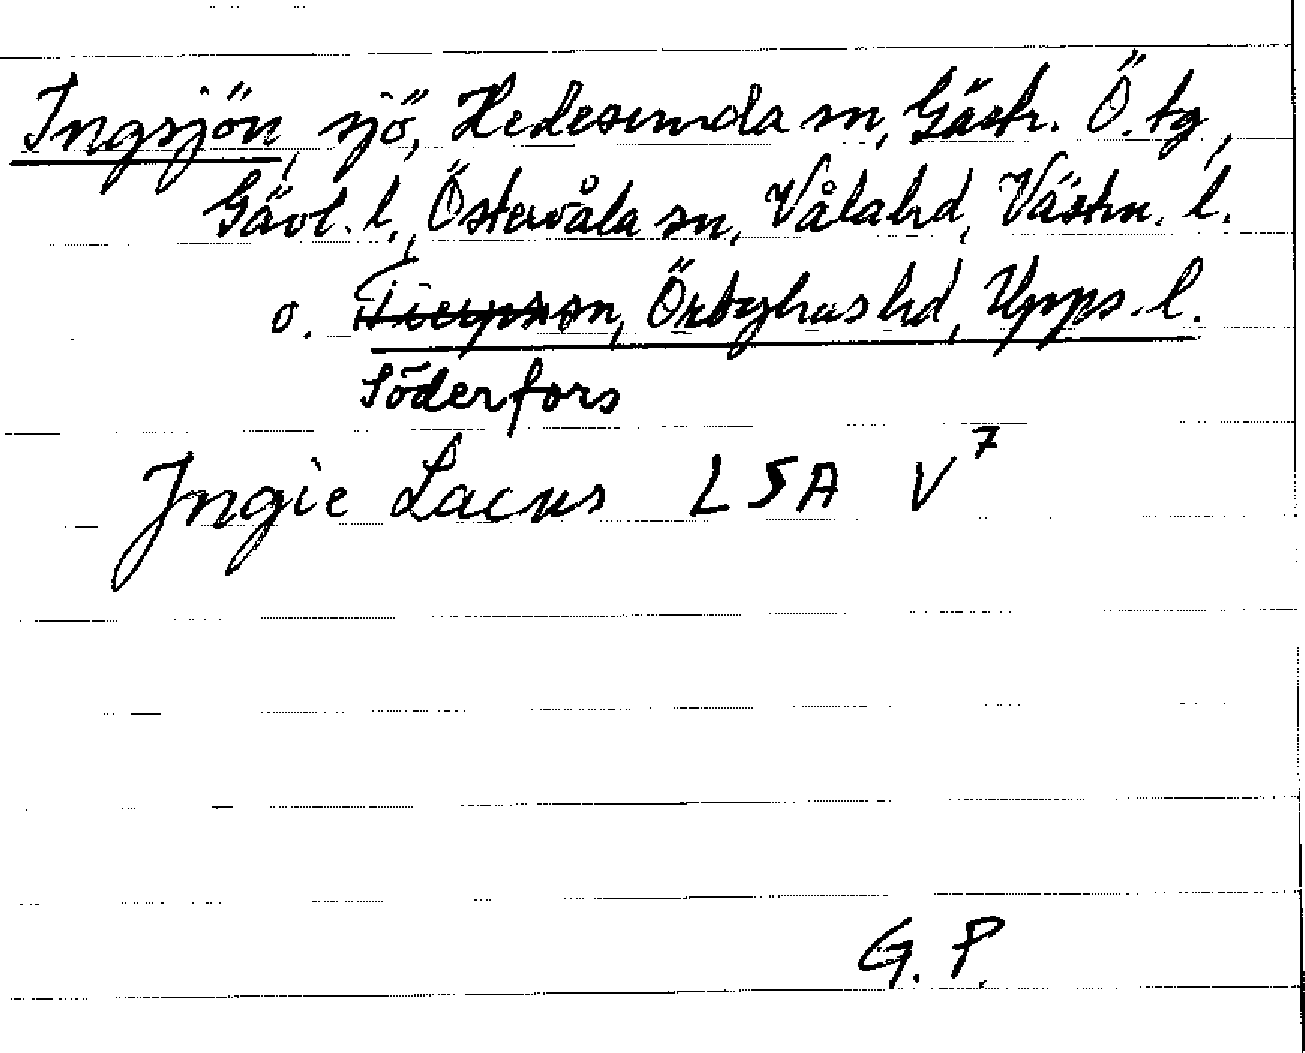 Ingsjön, sjö, Hedesunda sn, Gästr. Ö. tg,
Gävl. l., Östervåla sn, Våla hd, Västm. l.
o. Tierps sn, Örbyhus hd, Upps. l.
Söderfors
Jngie Lacus LSA V 7
G. P.